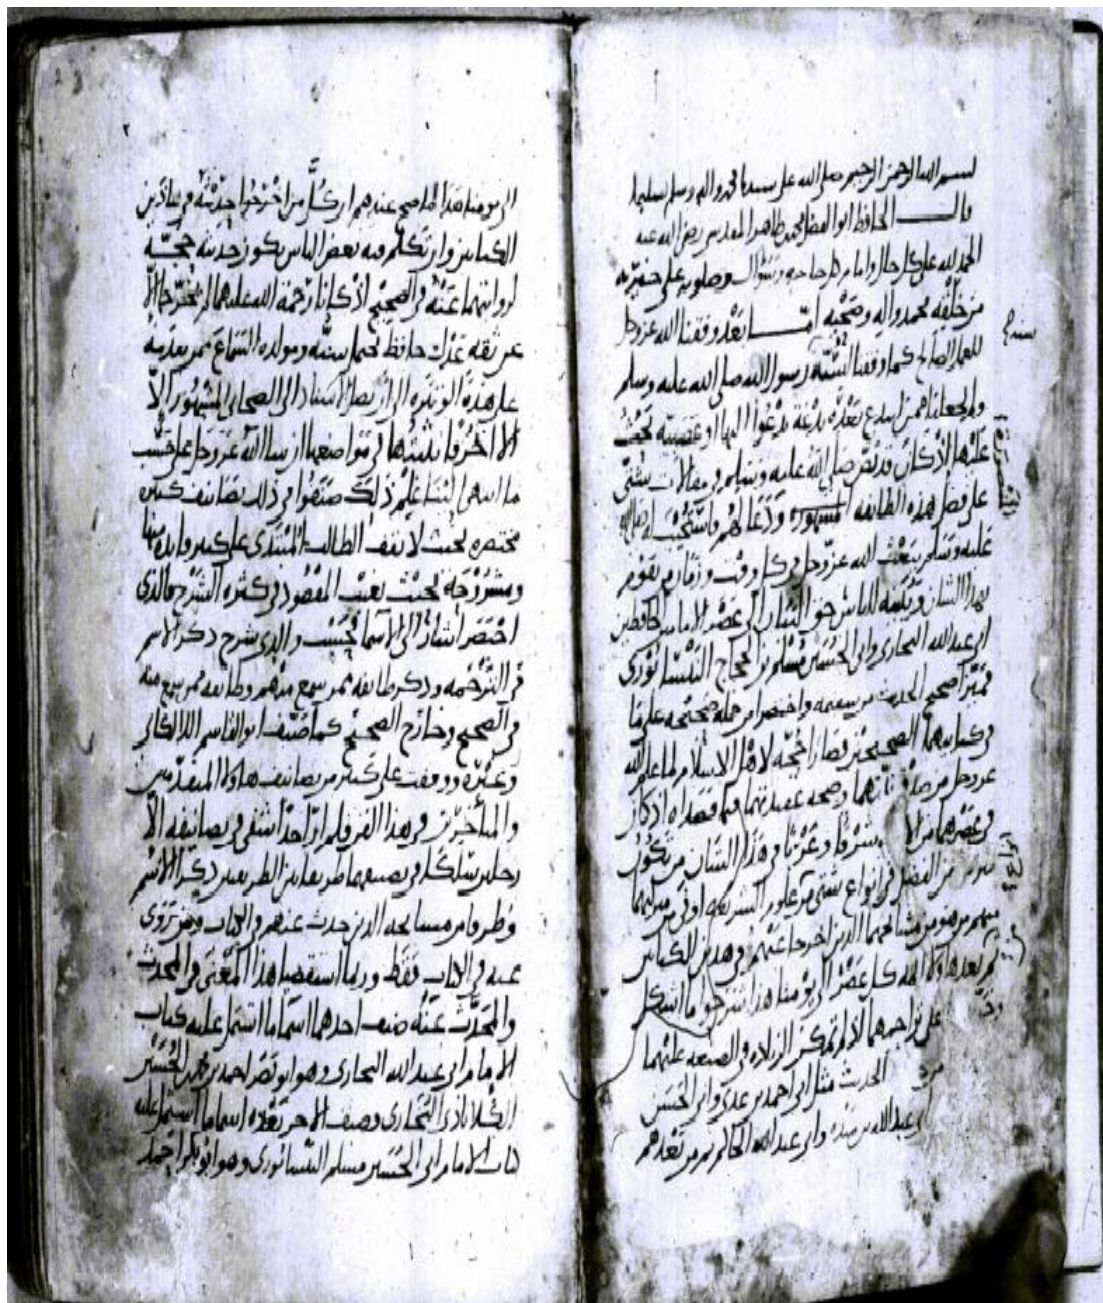 بسم الله الرحمن الرحيم صلى الله على سيدنا محمد واله وسلم تسليما
قال الحافظ ابو الفضل محمد بن طاهر المقدسي رضي الله عنه
الحمد لله على كل حال وامام كل حاجة وسؤال وصلوته على خيرته
من خلقه محمد واله وصحبه اما بعد وفقنا الله عز وجل
للعمل الصالح كما وفقنا لسنة رسول الله صلى الله عليه وسلم
ولا يجعلنا ممن ابتدع بعده بدعة يدعوا اليها او عصبية
عليها اذ كان قد نص صلى الله عليه وسلم في مقالات شتى
على فضل هذه الطائفة المشهورة ودعا لهم فاستجيب له صلى الله
عليه وسلم يبعث الله عز وجل في كل وقت وزمان من يقوم
بهذا الشان وينبه الناس الى عصر الامامين الحافظين
ابي عبد الله البخاري وابي الحسين مسلم بن الحجاج النيسابوري
فميزا صحيح الحديث من سقيمه واختصرا من جملة صحيحه على ما
في كتابيهما الصحيحين فصارا حجة لاهل الاسلام لما علم الله
عز وجل من نياتهما وصحة عقيدتهما فيما قصداه اذ كان
في عصرهما من شرقا وغربا في هذا الشان من تكون
من الفضل في انواع شتى من علوم الشريعة اوفى من ميزلتهما
منهم من هو من مشايخهما الذين اخرجا عنهم في هذين الكتابين
ثم بعدهما الائمة كل عصر الى يومنا هذا شرحوا ما اشكل
عن تراجمهما في الصنعة عليهما
الحديث مثل ابي احمد بن عدي وابي الحسن
ابي عبد الله بن منده وابي عبد الله الحاكم ثم من بعدهم
الى يومنا هذا فلما صح عندهم ان كل من اخرجا حديثه في هاذين
الكتابين وان تكلم فيه بعض الناس يكون حديثه حجة
لروايتهما عنه في الصحيح اذ كانا رحمة الله عليهما لم يخرجا الا
عن ثقة عدل حافظ يحتمل سنه ومولده السماع ممن يقدمه
على هذه الوتيرة الى ان يصل الاسناد الى الصحابي المشهور الا
الا احرفا نبينها في مواضعها ان شا الله عز وجل على حسب
ما انتهى الينا علم ذلك صنفوا في ذلك تصانيف كتبت
مختصرة بحيث لا يقف الطالب المبتدي على كبير فايدة منها
ومشروحة بحيث يغيب المقصود في كثرة الشرح فالذي
اختصر اشار الى الاسما فحسب والذي شرح ذكر الاسم
في الترجمة وذكر طائفة ممن سمع منهم وطائفة ممن سمع منه
في الصحيح وخارج الصحيح كما صنف ابو القاسم اللالكائي
وغيره ووقفت على كثير من تصانيف هاولا المتقدمين
والمتأخرين في هذا الفن فلم ار احدا اشفى في تصانيفه الا
رجلين سلكا في تصنيفهما طريقا بين الطريقين ذكر الاسم
وطرفا من مشايخه الذين حدث عنهم في الكتاب ومن روى
عنه في الكتاب فقط وربما استقصيا هذا المعنى في المحدث
والمحدث عنه صنف احدهما اسما ما اشتمل عليه كتاب
الامام ابي عبد الله البخاري وهو ابو نصر احمد بن محمد بن الحسين
الكلاباذي البخاري وصنف الاخر بعده اسما ما اشتمل عليه
كتاب الامام ابي الحسين مسلم النيسابوري وهو ابو بكر احمد